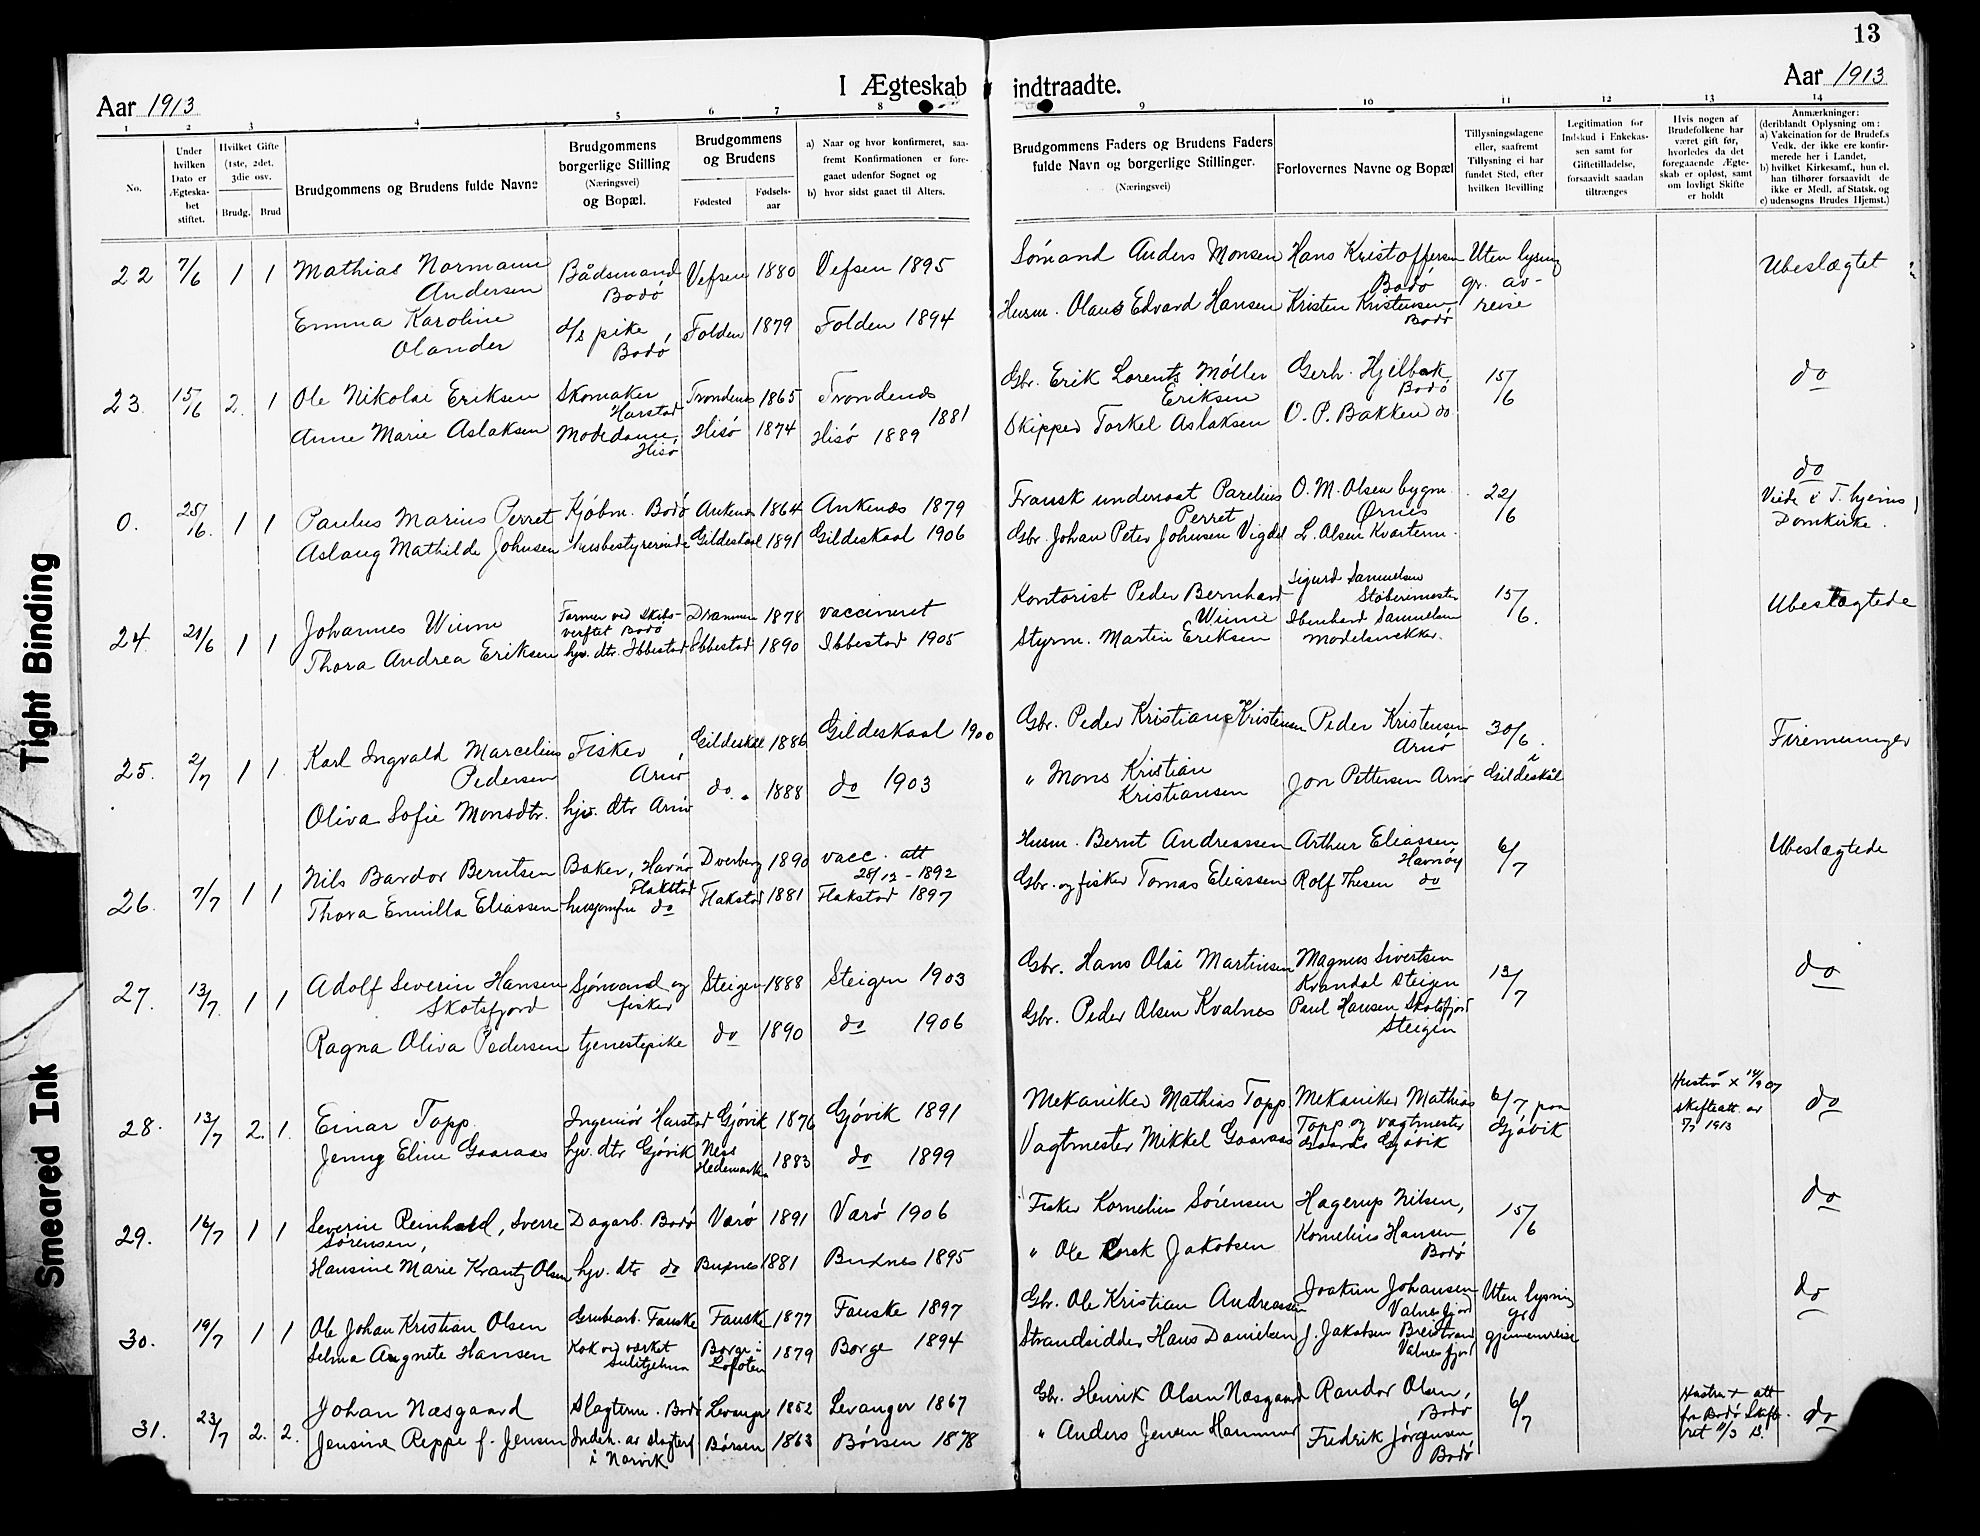 13
Tight Binding
Smeared Ink
Aar 1913
I Ægteskab indtraadte.
Aar 1913
1 2 3 4 5 6 7 8 9 10 11 12 13 14
No.
Under hvilken Dato er Ægteska-bet stiftet.
Hvilket Gifte (1ste, 2det, 3die osv.
Brudg. Brud
Brudgommens og Brudens fulde Navne
Brudgommens borgerlige Stilling (Næringsvei) og Bopæl.
Brudgommens og Brudens
Fødested
Fødsels-aar
a) Naar og hvor konfirmeret, saa-fremt Konfirmationen er fore-gaaet udenfor Sognet og
b) hvor sidst gaaet til Alters.
Brudgommens Faders og Brudens Faders fulde Navn og borgerlige Stillinger.
(Næringsvei)
Forlovernes Navne og Bopæl
Tillysningsdagene eller, saafremt Tillysning ei har fundet Sted, efter hvilken Bevilling
Legitimation for Indskud i Enkekas-sen samt for Giftetilladelse, forsaavidt saadan tiltrænges
Hvis nogen af Brudefolkene har været gift før, hvorledes da det foregaaende Ægte-skab er opløst, samt om lovligt Skifte er holdt
Anmærkninger: (deriblandt Oplysning om:
a) Vakcination for de Brudef.s Vedk. der ikke ere konfir-merede her i Landet,
b) hvilket Kirkesamf., hun el. han tilhører forsaavidt de ikke er Medl. af Statsk. og
c) udensogns Brudes Hjemst.)
22 7/6 1 1 Mathias Normann Andersen Bådsmand Bodø Vefsen 1880 Vefsen 1895 Sømand Anders Monsen Hans Kristoffersen Bodø Uten lysning gr. av-reise Ubeslægtet
Emma Karoline Olander pike, Bodø Folden 1879 Folden 1894 Husm. Olaus Edvard Hansen Kristen Kristensen Bodø
23. 15/6 2. 1 Ole Nikolai Eriksen Skomaker Harstad Trondenes 1865 Trondenes 1881 Gbr. Erik Lorents Møller Eriksen Gerh. Hjilbak Bodø 15/6 do
Anne Marie Aslaksen Modedame, Hisø Hisø 1874 Hisø 1889 Skipper Torkel Aslaksen O. P. Bakken do.
0. 25/6. 1 1 Paulus Marius Perret Kjøbm. Bodø Ankenes 1864 Ankenes 1879 Fransk undersåt Parelius Perret O. M. Olsen bygm. Ørnes 22/6 do Viede i T. hjems Domkirke.
Aslaug Mathilde Johnsen husbestyrerinde Gildeskaal 1891 Gildeskaal 1906 Gbr. Johan Peter Johnsen Vigdel L. Olsen Kvarterm.
24. 21/6 1 1 Johannes Wiime Former ved Skibs-verftet Bodø Drammen 1878 vaccineret Kontorist Peder Bernhard Wiime Sigurd Samuelsen Støberimester 15/6. Ubeslægtede
Thora Andrea Eriksen hjv. dtr. Ibbestad Ibbestad 1890 Ibbestad 1905 Styrm. Martin Eriksen Ibenhard Samuelsen modelsnekker.
25. 2/7 1 1. Karl Ingvald Marcelius Pedersen Fisker, Arnø Gildeskål 1886 Gildeskaal 1900 Gbr. Peder Kristian Kristensen Peder Kristensen Arnø 30/6. i Gildeskål Firemenninger
Oliva Sofie Monsdtr. hjv. dtr Arnø do. 1888 do 1903 " Mons Kristian Kristiansen Jon Pettersen Arnø
26. 7/7 1 1 Nils Bardor Berntsen Baker, Havnø Flakstad Dverberg 1890 vacc. att 28/12 - 1892 Husm. Bernt Andreassen Arthur Eliassen Havnøy 6/7 Ubeslægtede
Thora Emilla Eliassen husjomfru do Flakstad 1881 Flakstad 1897 Gbr. og fisker Tomas Eliassen Rolf Thesen do
27. 13/7. 1 1 Adolf Severin Hansen Skotsfjord Sjømand og fisker Steigen 1888 Steigen 1903 Gbr. Hans Olai Martinsen Magnus Sivertsen Kvandal Steigen 13/7 do
Ragna Oliva Pedersen tjenestepike do 1890 do 1906 Gbr. Peder Olsen Kvalnes Paul Hansen Skotsfjord Steigen
28. 13/7 2. 1. Einar Topp Ingeniør Harstad Gjøvik 1876 Gjøvik 1891 Mekaniker Mathias Topp Mekaniker Mathias Topp og vagtmester Gaaraas Gjøvik 6/7 paa Gjøvik Hustru x 07 skifteatt. av 7/7 1913 do
Jenny Eline Gaaraas hjv. dtr Gjøvik Ness Hedemarken 1883 do 1899 Vagtmester Mikkel Gaaraas
29. 16/7 1 1 Severin Reinhold, Sverre Sørensen, Dagarb. Bodø Værø 1891 Værø 1906 Fisker Kornelius Sørensen Hagerup Nilsen, 15/6 do
Hansine Marie Krantz Olsen hjv. dtr do Buxnes 1881 Buxnes 1895 " Ole Korsk Jakobsen Kornelius Hansen Bodø
30. 19/7 1 1 Ole Johan Kristian Olsen Grubearb. Fauske Fauske 1877 Fauske 1897 Gbr. Ole Kristian Andreassen Joakim Johansen Valnesfjord Uten lysning gr. gjennemreise do
Selma Augnete Hansen Kok ved verket Sulitjelma Borge i Lofoten 1879 Borge 1894 Strandsidder Hans Danielsen J. Jakobsen Breistrand Valnesfjord
31. 23/7 2. 2. Johan Næsgaard Slagterm. Bodø Levanger 1852 Levanger 1867 Gbr. Henrik Olsen Næsgaard Randor Olsen, Bodø 6/7 Hustru + att fra Bodø Skift-ret 11/3 13. do
Jensine Reppe f. Jensen Indeh. av slagterf. i Narvik Børsen 1863 Børsen 1878 " Anders Jensen Hammer Fredrik Jørgensen Bodø